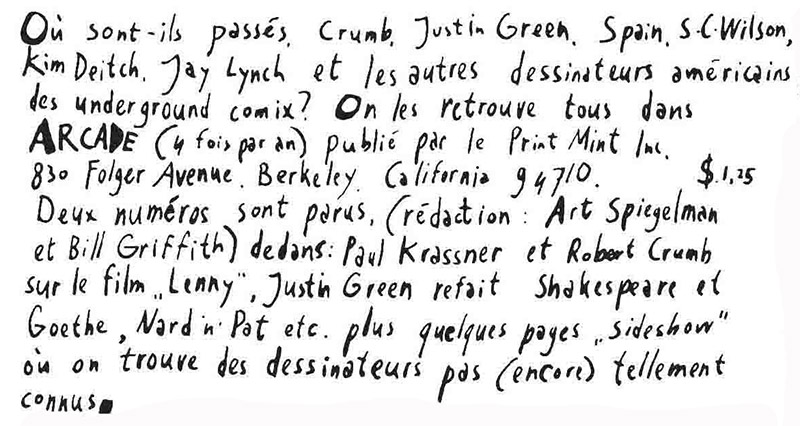 Où sont-ils passés, Crumb, Justin Green, Spain, S.C.Wilson,
Kim Deitch, Jay Lynch et les autres dessinateurs américains
des underground comix? On les retrouve tous dans
ARCADE (4 fois par an) publié par le Print Mint Inc.
830 Folger Avenue. Berkeley. California 94710. $.1,25
Deux numéros sont parus, (rédaction : Art Spiegelman
et Bill Griffith) dedans: Paul Krassner et Robert Crumb
sur le film „Lenny", Justin Green refait Shakespeare et
Goethe, Nard 'n' Pat etc. plus quelques pages „sideshow"
où on trouve des dessinateurs pas (encore) tellement
connus.